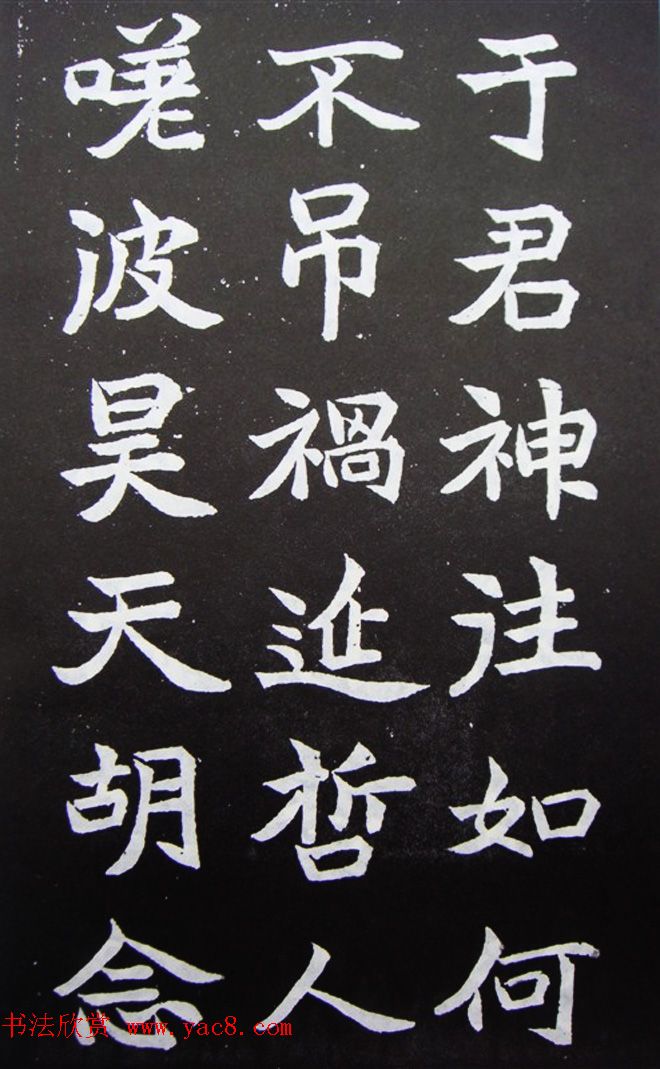 于君神往如何
不吊禍延哲人
嗟波昊天胡念
书法欣赏 www.yac8.com